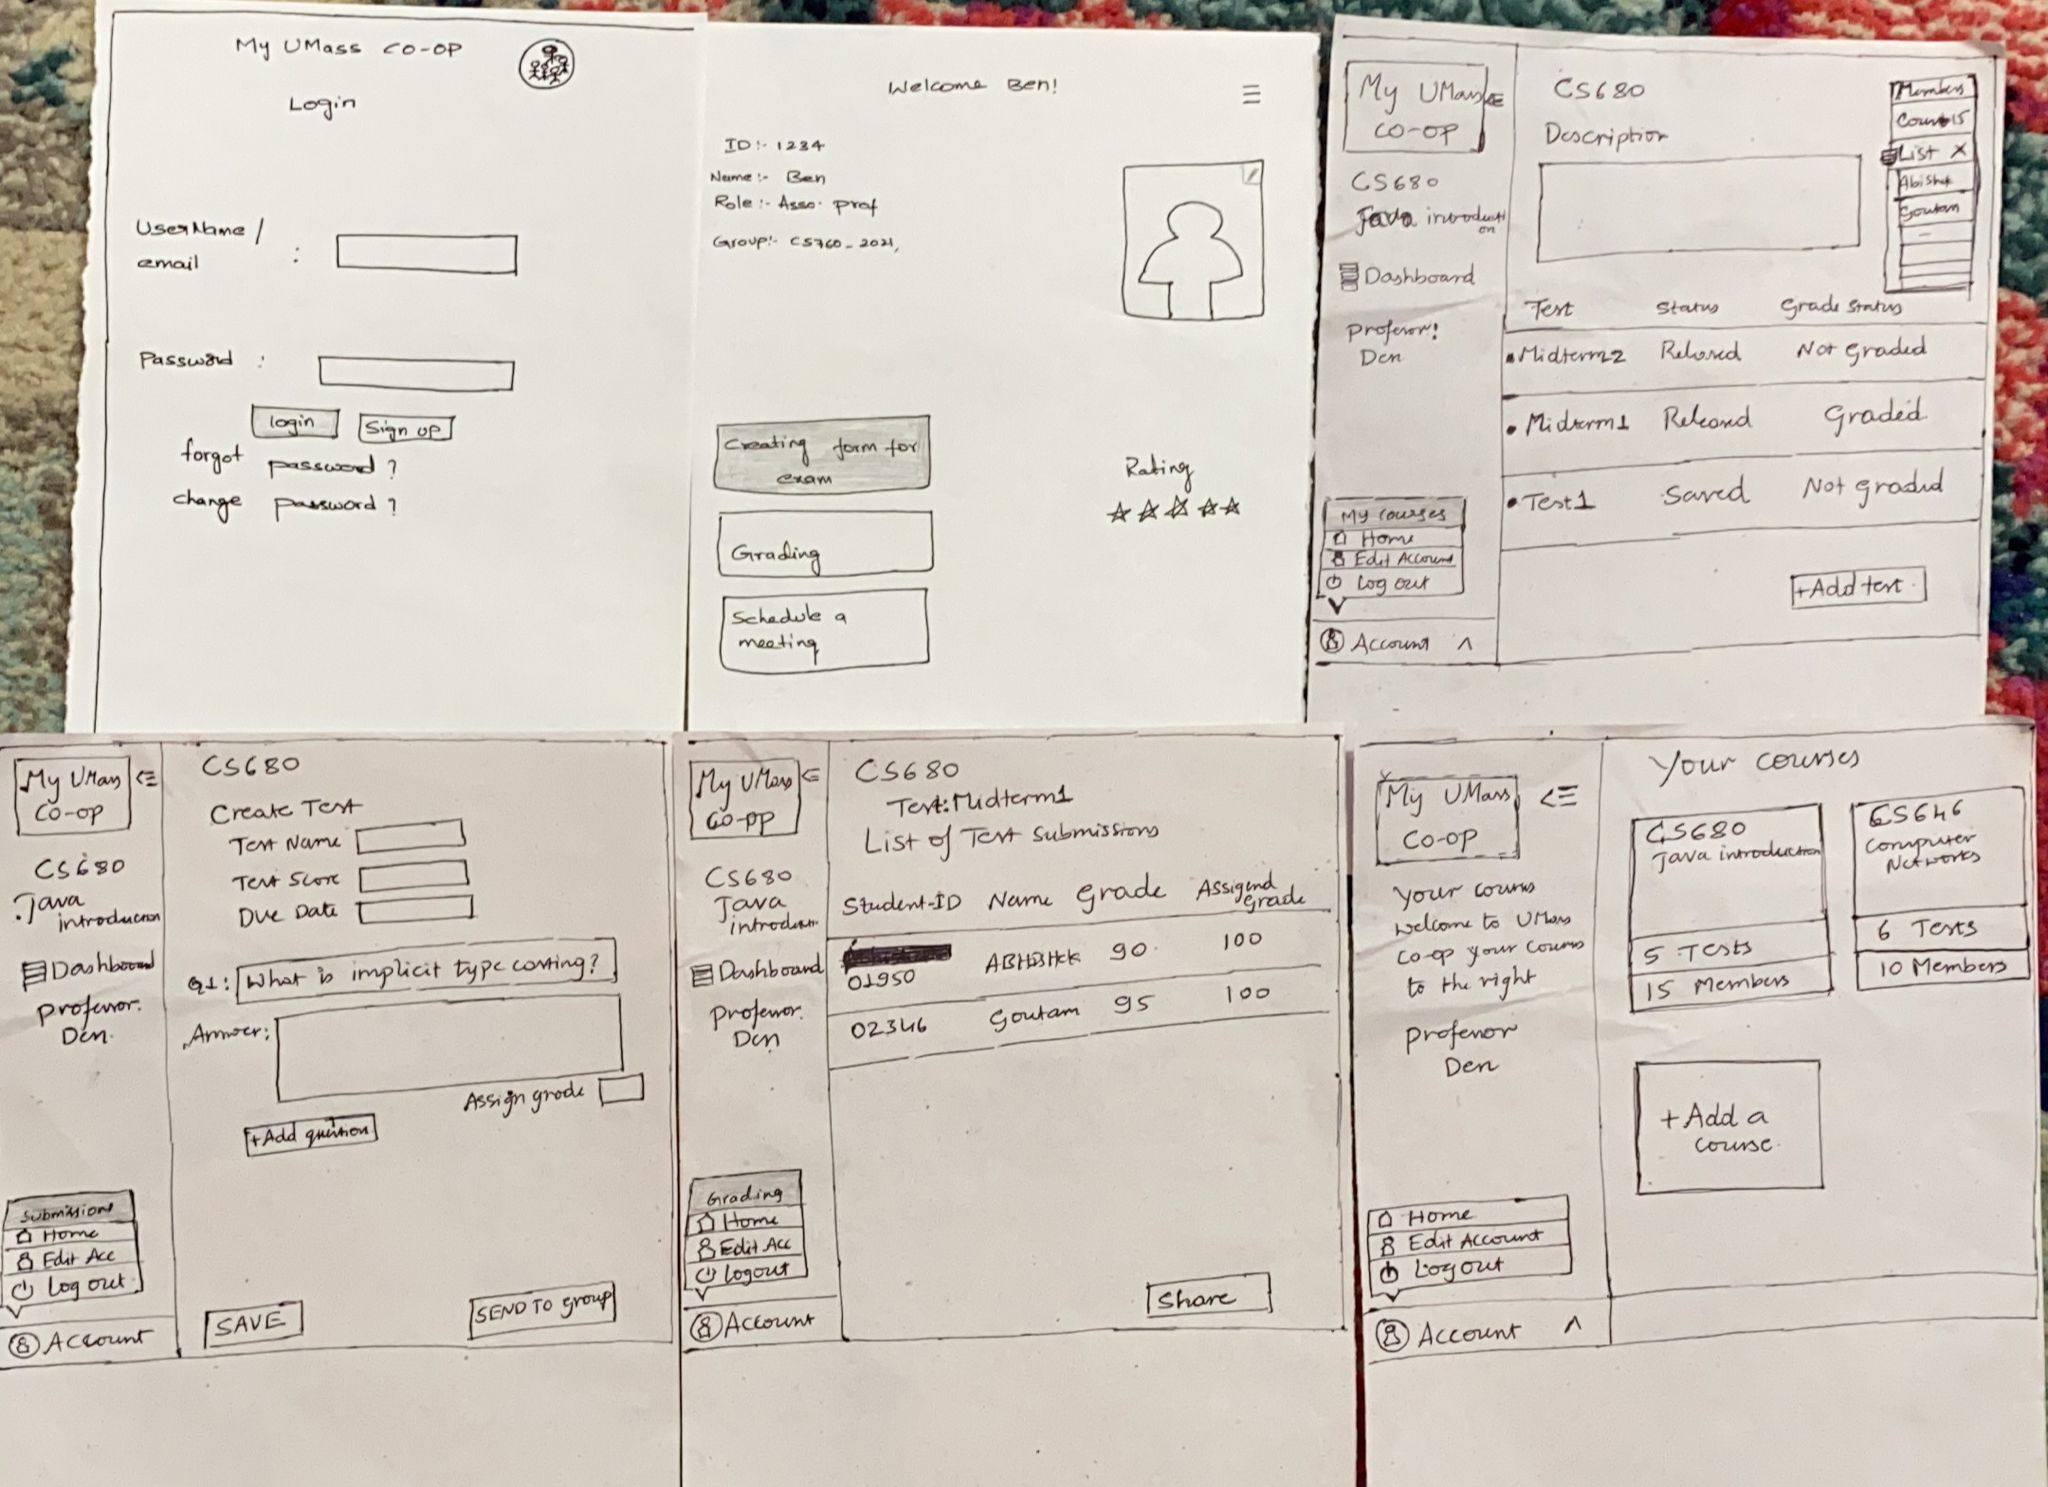 My UMass CO-OP
Login
UserName /
email :
Password :
login
Sign up
forgot password ?
change password ?
Welcome Ben!
ID:- 1234
Name:- Ben
Role:- Asso. prof
Group:- CS760_2021,
Creating form for
exam
Grading
Schedule a
meeting
Rating
My UMass
CO-OP
CS680
Java introducti
on
Dashboard
Professor!
Den
My courses
Home
Edit Account
Log out
Account ^
CS680
Description
Members
Count 15
List X
Abishek
Goutam
Test Status Grade Status
Midterm2 Released Not Graded
Midterm1 Released Graded
Test1 Saved Not graded
+Add test
My UMass
CO-OP
CS680
Java
introduction
Dashboard
Professor.
Den.
Submissions
Home
Edit Acc
Log out
Account
CS680
Create Test
Test Name
Test Score
Due Date
Q1: What is implicit type casting?
Answer:
Assign grade
+Add question
SAVE
SEND TO group
My UMass
CO-OP
CS680
Java
introduction
Dashboard
Professor.
Den
Grading
Home
Edit Acc
Logout
Account
CS680
Test:Midterm1
List of Test Submissions
Student-ID Name Grade Assigend
Grade
01950 ABHISHEK 90. 100
02346 Goutam 95 100
Share
My UMass
CO-OP
Your courses
welcome to UMass
co-op your courses
to the right
professor
Den
Home
Edit Account
Logout
Account ^
Your courses
CS680
Java introduction
5 Tests
15 Members
CS646
Computer
Networks
6 Tests
10 Members
+Add a
course.